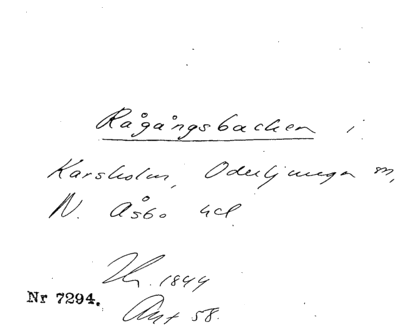 Rågångsbacken i
Karsholm, Oderljunga sn,
N. Åsbo hd.
1844
Nr 7294.
Akt 58.